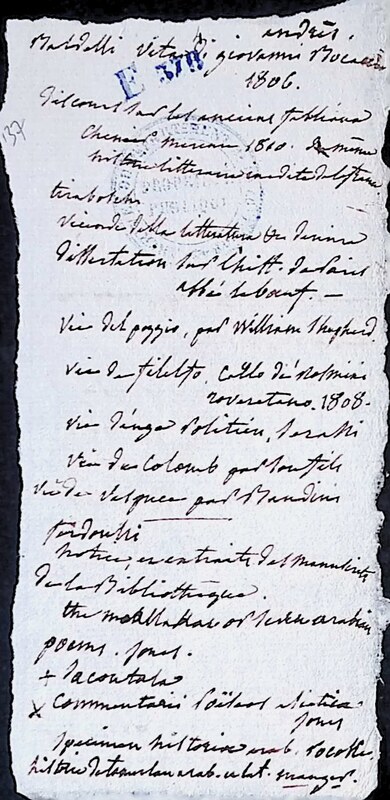 andrès.
Baldelli vita di giovanni Bocaccio
E 378
1806.
discours sur les anciens fabliaux
137
Chenier mercure 1810. du même
histoire litteraire inedite de
tiraboschi
vicende della litteratura de denina
dissertation sur l'hist. de Paris
abbé leboeuf. —
vie del poggio, par William Shepherd.
vie de filelfo. Carlo de' rosmini
roveretano. 1808.
vie d'ange Politien, Serassi
vie de Colomb par son fils
vie de Vespuce par Bandini
ferdoussi
notices, et extraits des manuscrits
de la Bibliotheque.
the moallakat or seven arabian
poems. jones.
+ Sacontala
x Commentarii Poëseos asiaticæ
jones
specimen historiæ arab. Pococke.
histoire de tamerlan arab. et lat. manger.